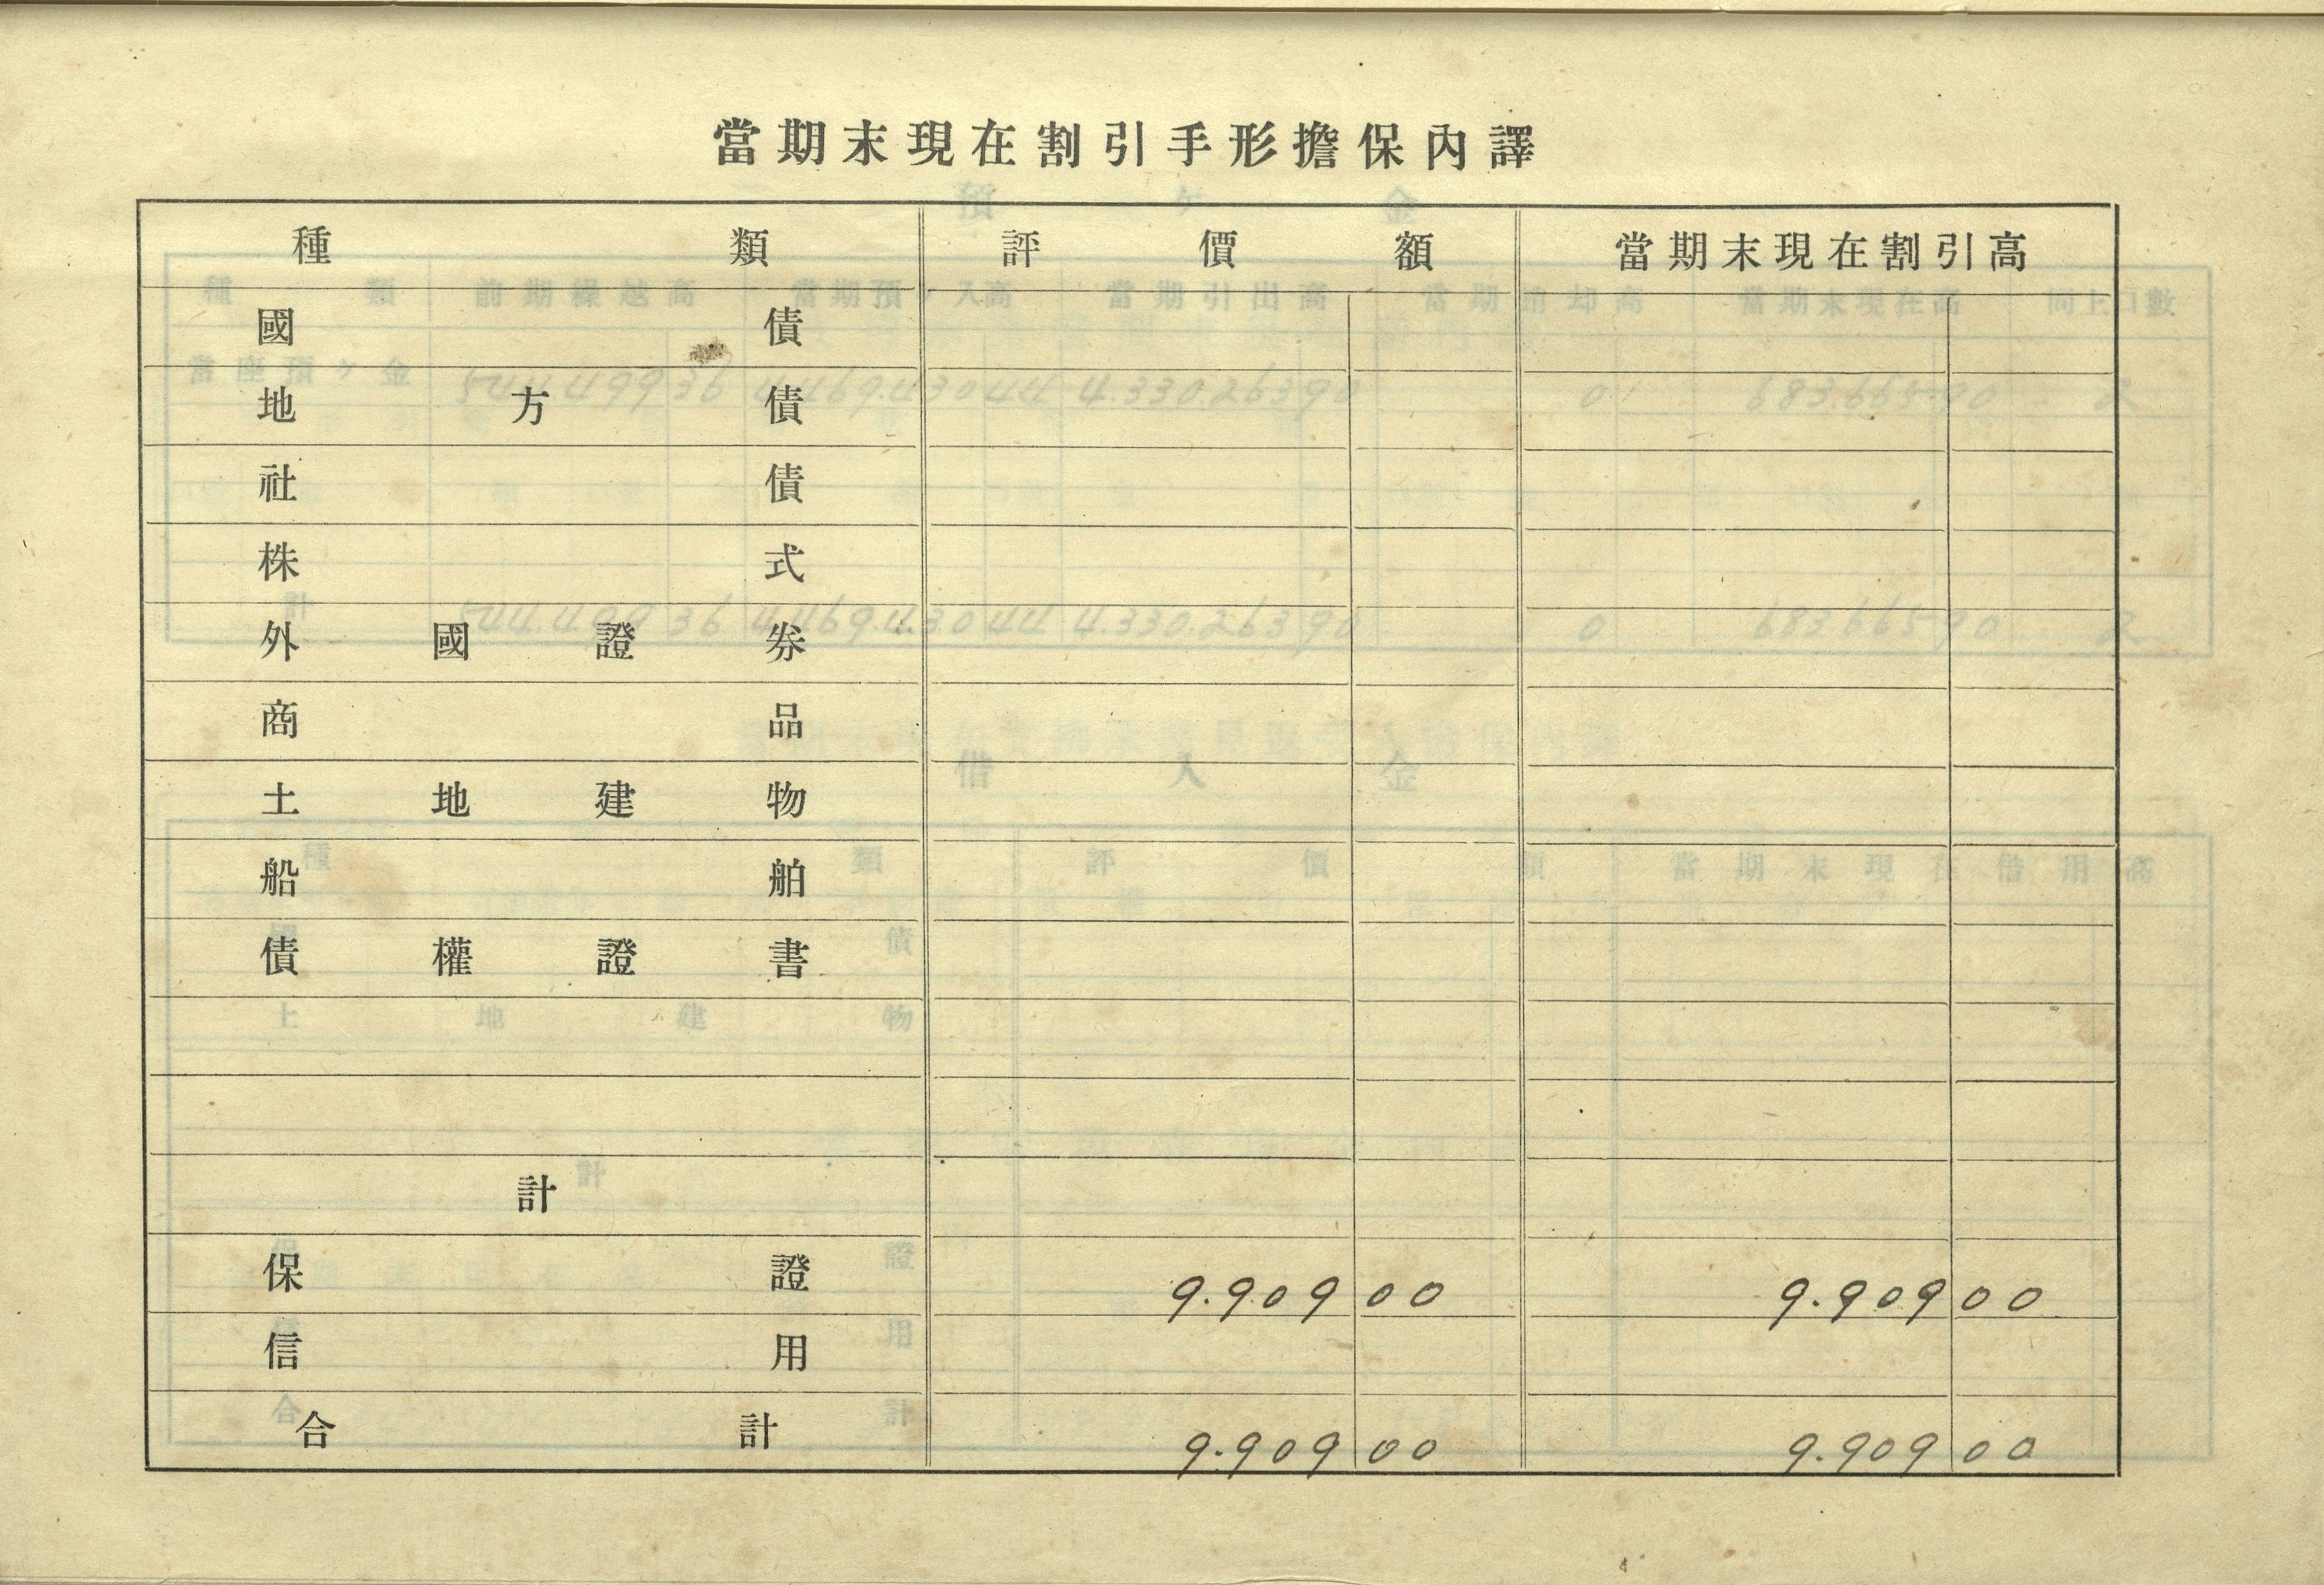 當期末現在割引手形擔保內譯
種類 評價額 當期末現在割引高
國債
地方債
社債
株式
外國證券
商品
土地建物
船舶
債權證書
計
保證 9.909 00 9.909 00
信用
合計 9.909 00 9.909 00